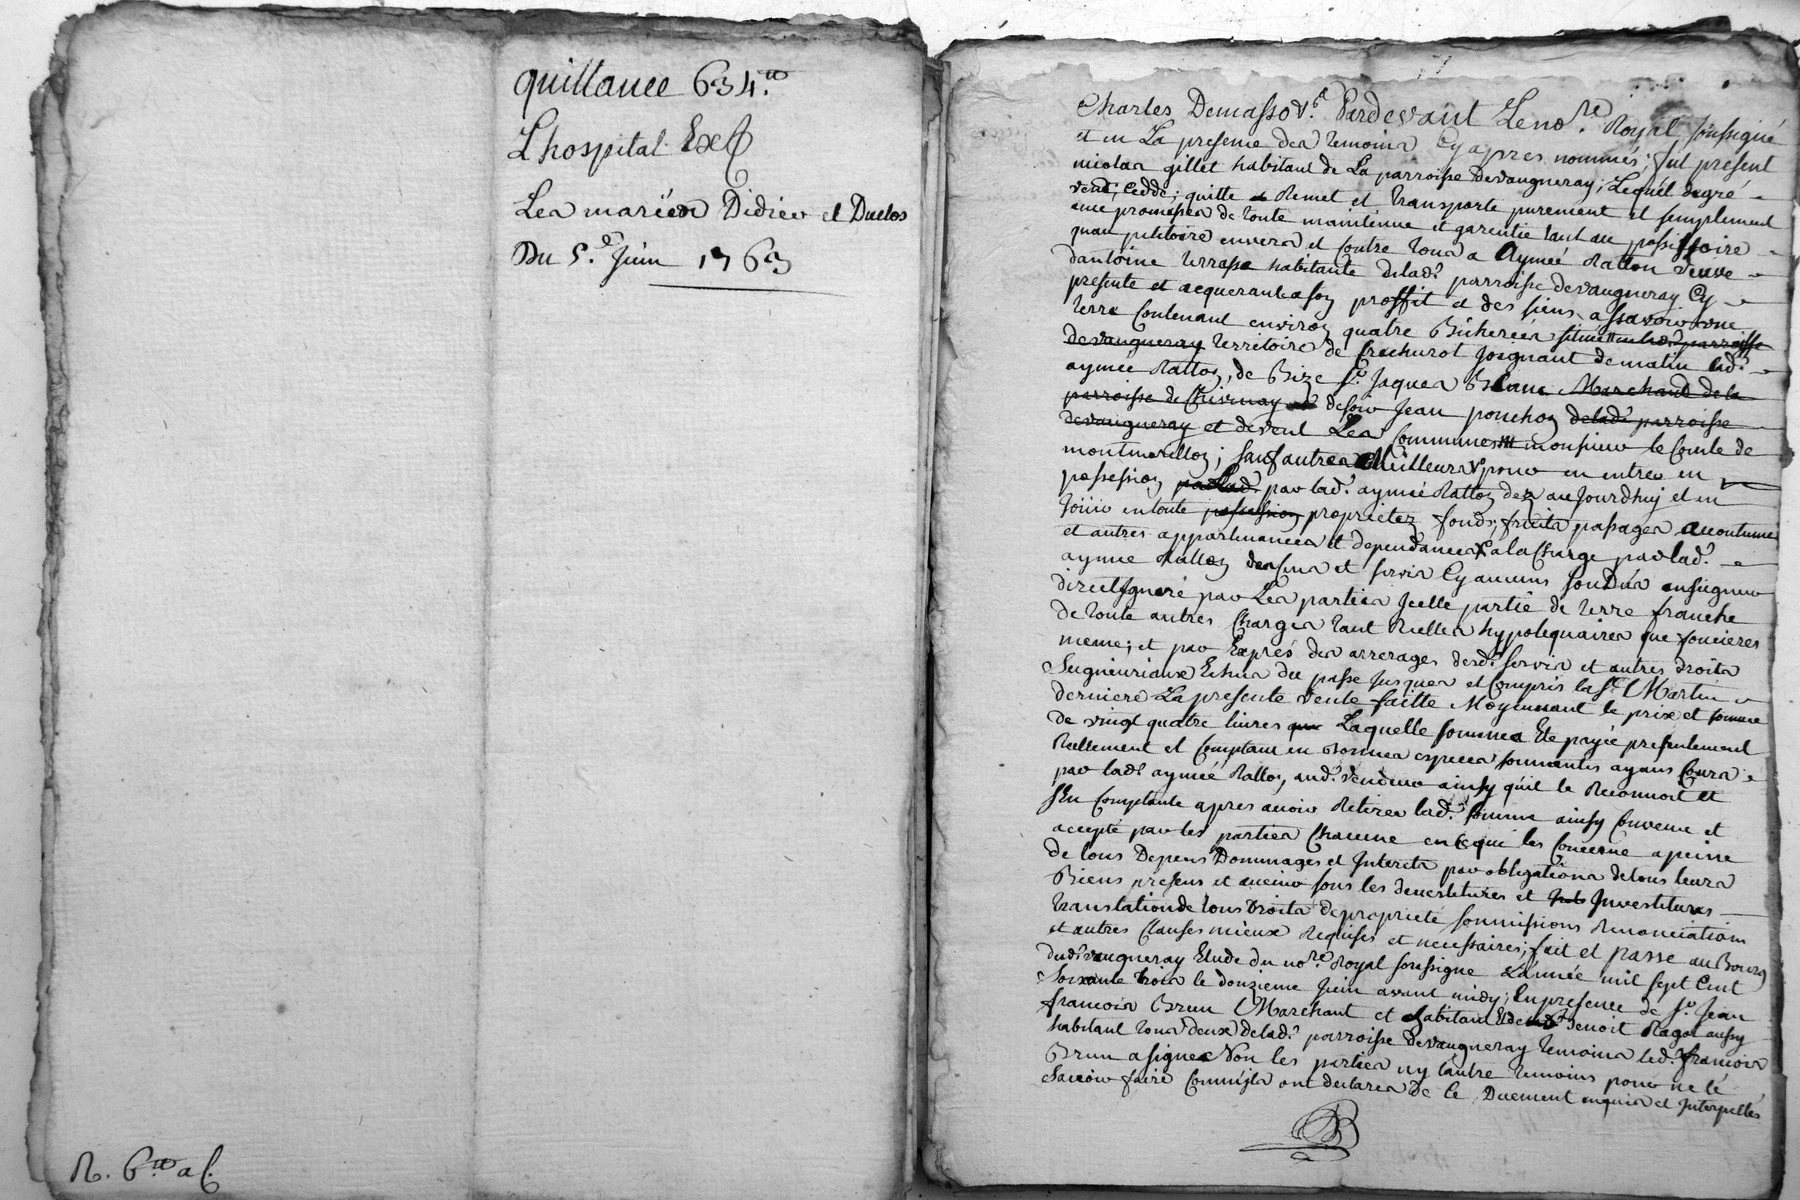 quittance 634.ᵗᵗ
Lhospital Ex
Les mariés Didier et Duclos
Du 5.ᵉ Juin 1763
R. 6ᵗᵗ a
Charles Demasso &ᵃ. Pardevant Le no.ʳᵉ Royal soussigné
et en La presence des temoins Cy apres nommés; fut present
nicolas gillet habitant de La parroisse devaugneray; Lequel degré
vend, cedde; quitte Remet et transporte purement et simplement
avec promesses de toute maintenue et garentie tant au possessoire
quau petitoire envers et Contre tous a Aymeé Ratton veuve
dantoine terrasse habitante delad.ᵉ parroisse devaugneray Cy
presente et acquerante a son proffit et des siens, assavoir une
terre Contenant environ quatre Bicherées situéé parroisse
devaugneray territoire de Crechurot Joignant de matin lad.ᵉ
aymée Ratton, de Bize s.ʳ Jaques Blanc Marchand de la
parroisse de de soir Jean ponchon delad.ᵉ parroisse
devaugneray et devent Les Communes monsieur le Comte de
montmorillon; sauf autres Meilleurs pour en entrer en
possession par lad.ᵉ par lad.ᵉ aymée Ratton dez aujourdhuy et en
Jouir en toute possession proprietez fonds; fruits passages accoutumé
et autres appartenances et dependances a la Charge par lad.ᵉ
aymée Ratton des cens et servis Cy aucuns sont Dus au seigneur
direct Ignoré par Les parties Icelle partie de terre franche
de toute autres Charges tant Réelles hypotequaires que foncieres
meme; et par Exprés des arrerages desd.ˢ servis et autres droits
Seigneuriaux Echus du passe Jusques et Compris la s.ᵗ Martin
derniere La presente vente faitte Moyennant le prix et somme
de vingt quatre livres Laquelle somme a Eté payée presentement
Réellement et Comptant en bonnes especes sonnantes ayans Cours
par lad.ᵉ aymée Ratton, aud.ᵗ vendeur ainsy quil le Reconnoit et
sen Comptante apres avoir Retirer lad.ᵉ somme ainsy Convenu et
accepté par les parties Chacune en ce qui les Concerne a peine
de tous Depens Dommages et Interets par obligations de tous leurs
Biens presens et avenir sous les devestitures et Investitures
translation de tous droits de proprieté soumissions Renonciations
et autres Clauses mieux Requises et necessaires; fait et passe au Bourg
dud.ᵗ vaugneray Etude du no.ʳᵉ Royal soussigne L'année mil sept Cent
Soixante trois le douzieme Juin avant midy; En presence de s.ʳ Jean
francois Brun Marchant et habitant Benoit Ragot aussy
habitant tous deux delad.ᵉ parroisse devaugneray temoins led.ᵗ francois
Brun a signe Non les parties ny lautre temoins pour ne le
Savoir faire Comme Ils ont declares de Ce Duement enquis et Interpellés